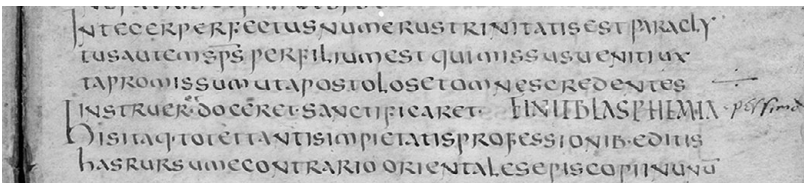 INTEGER PERFECTUS NUMERUS TRINITATIS EST PARACLY
TUS AUTEM SPS PER FILIUM EST QUI MISSUS UENIT IUX
TA PROMISSUM UT APOSTOLOS ET OMNES CREDENTES
INSTRUER DOCERET SANCTIFICARET FINIT BLASPHEMIA
HIS ITAQ TOT ET TANTIS IMPIETATIS PROFESSIONIB EDITIS
HAS RURSUM E CONTRARIO ORIENTALES EPISCOPI IN UNU